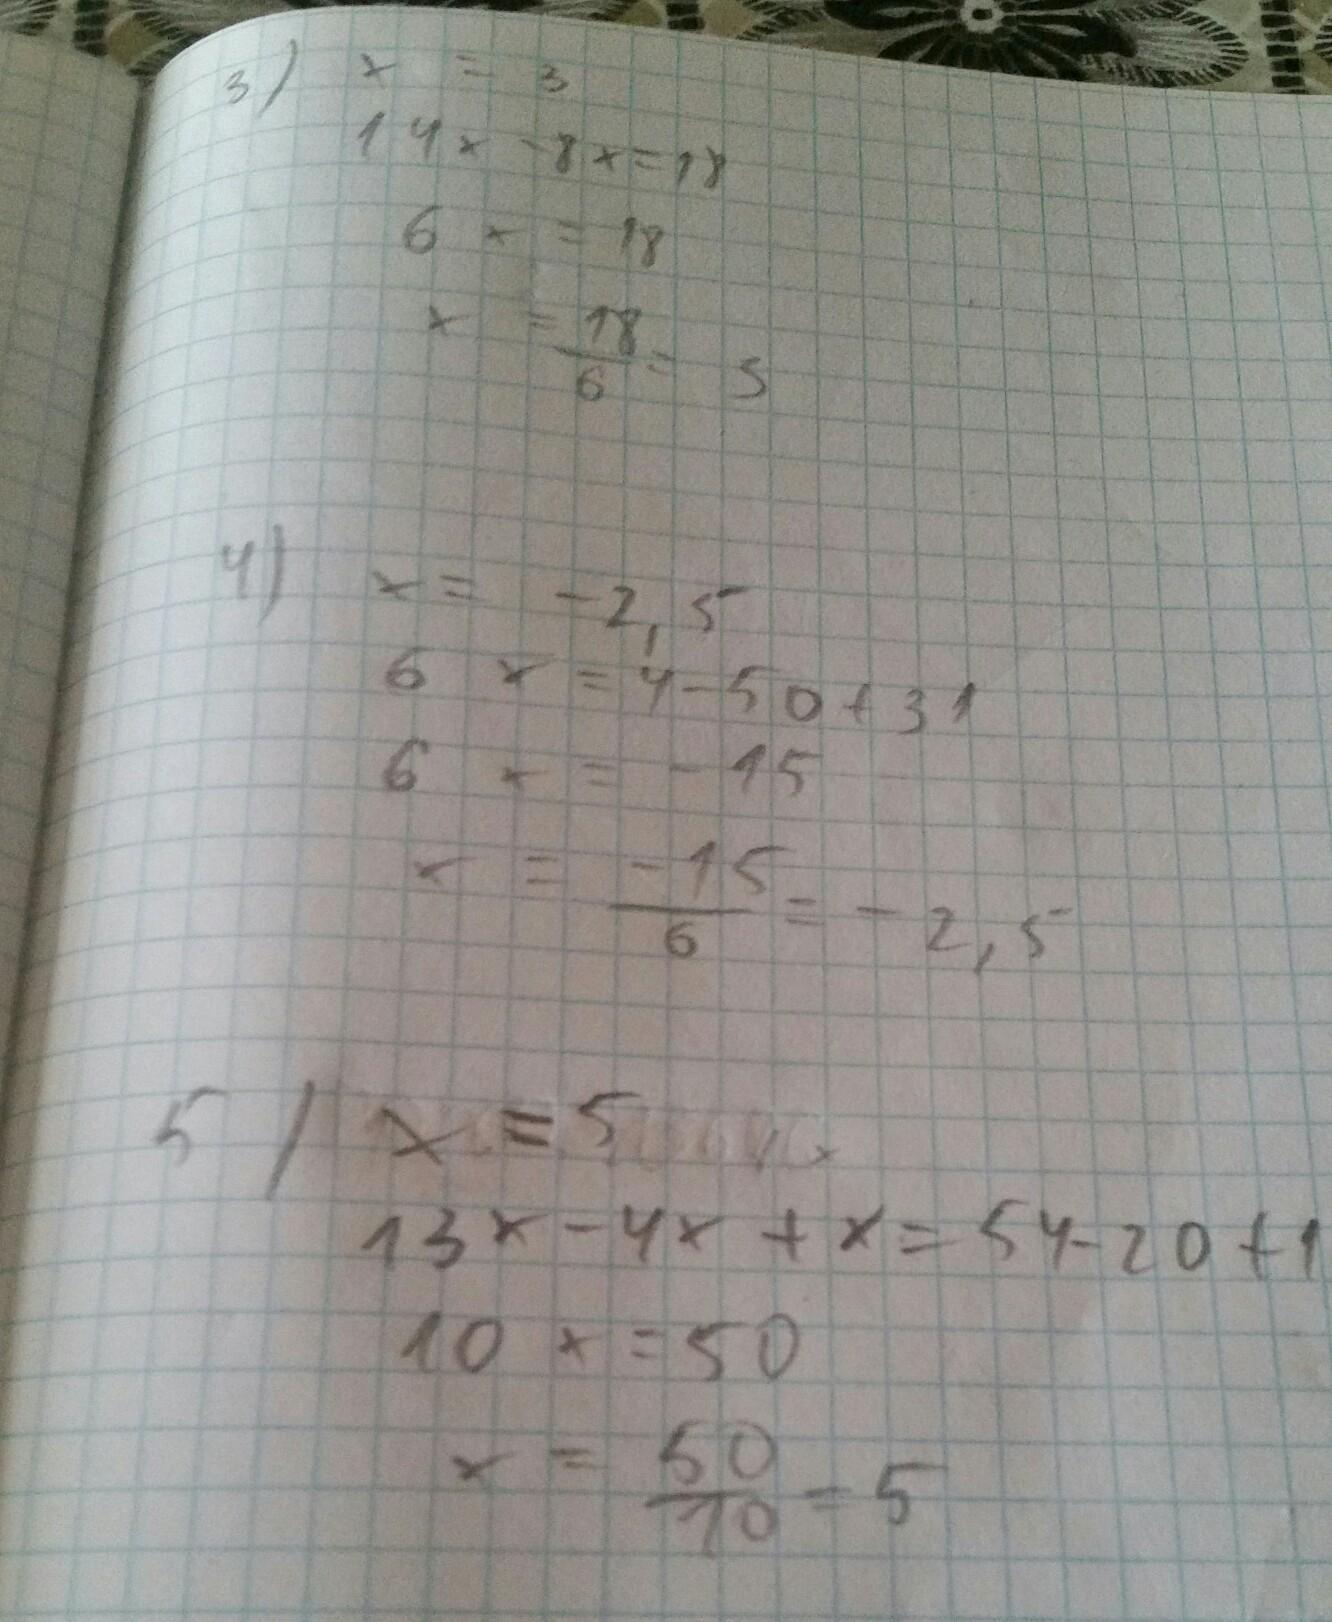 3) x = 3
14x - 8x = 18
6 x = 18
x = 18/6 = 3
4) x = -2,5
6 x = 4 - 50 + 31
6 x = -15
x = -15/6 = -2,5
5) x = 5
13x - 4x + x = 54 - 20 + 1
10 x = 50
x = 50/10 = 5